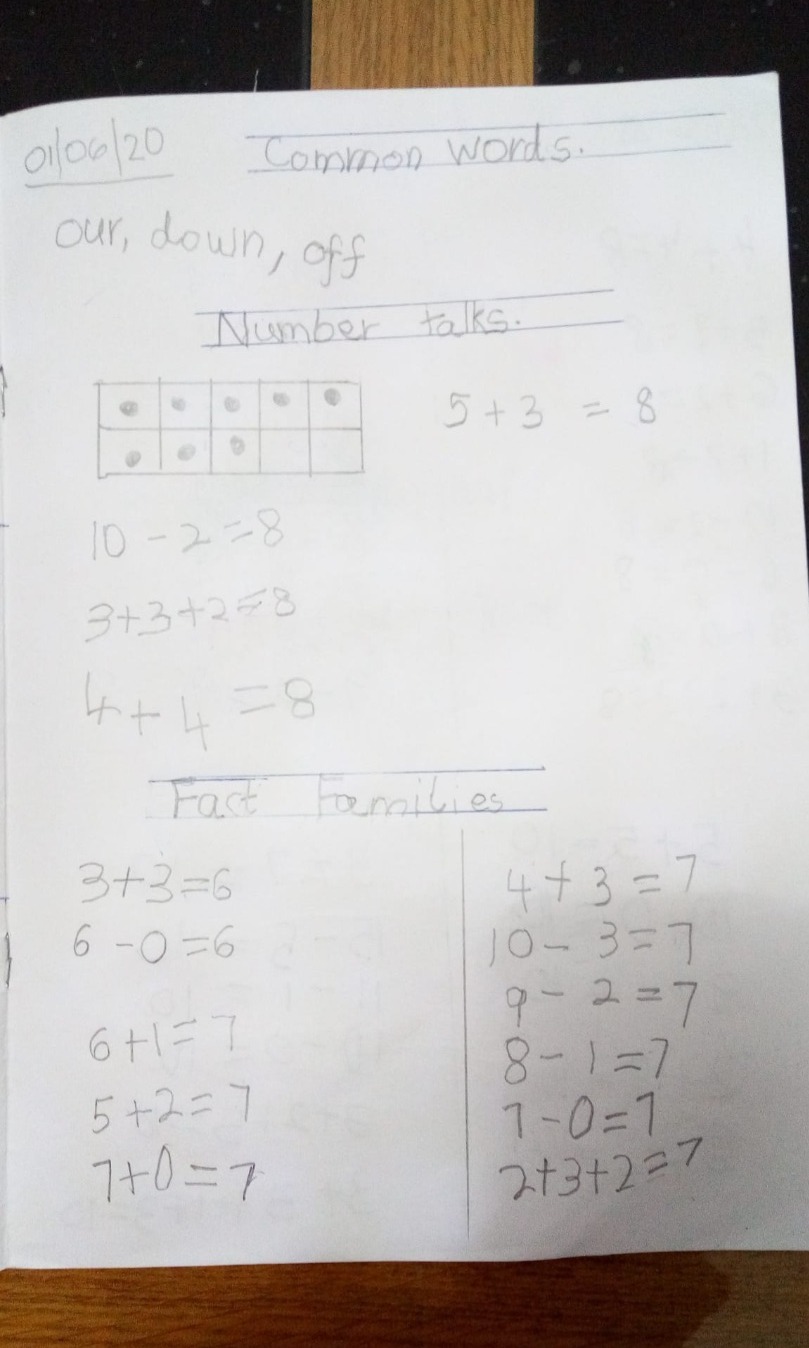 01/06/20 Common words.
our, down, off
Number talks.
5 + 3 = 8
10 - 2 = 8
3+3+2=8
4+4=8
Fact Families
3+3=6
6-0=6
6+1=7
5+2=7
7+0=7
4+3=7
10-3=7
9-2=7
8-1=7
7-0=7
2+3+2=7